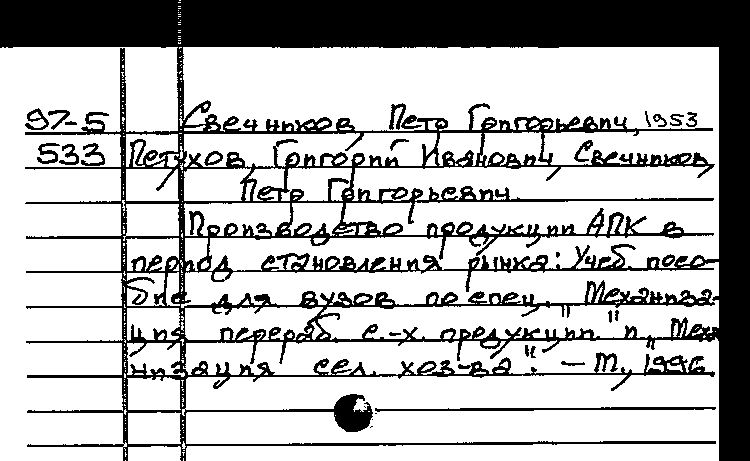 97-5 Свечников, Петр Григорьевич, 1953
533 Петухов, Григорий Иванович, Свечников,
Петр Григорьевич.
Производство продукции АПК в
период становления рынка: Учеб. посо-
бие для вузов по спец. „Механиза-
ция перераб. с.-х. продукции" и „Меха
низация сел. хоз-ва". – М., 1996.